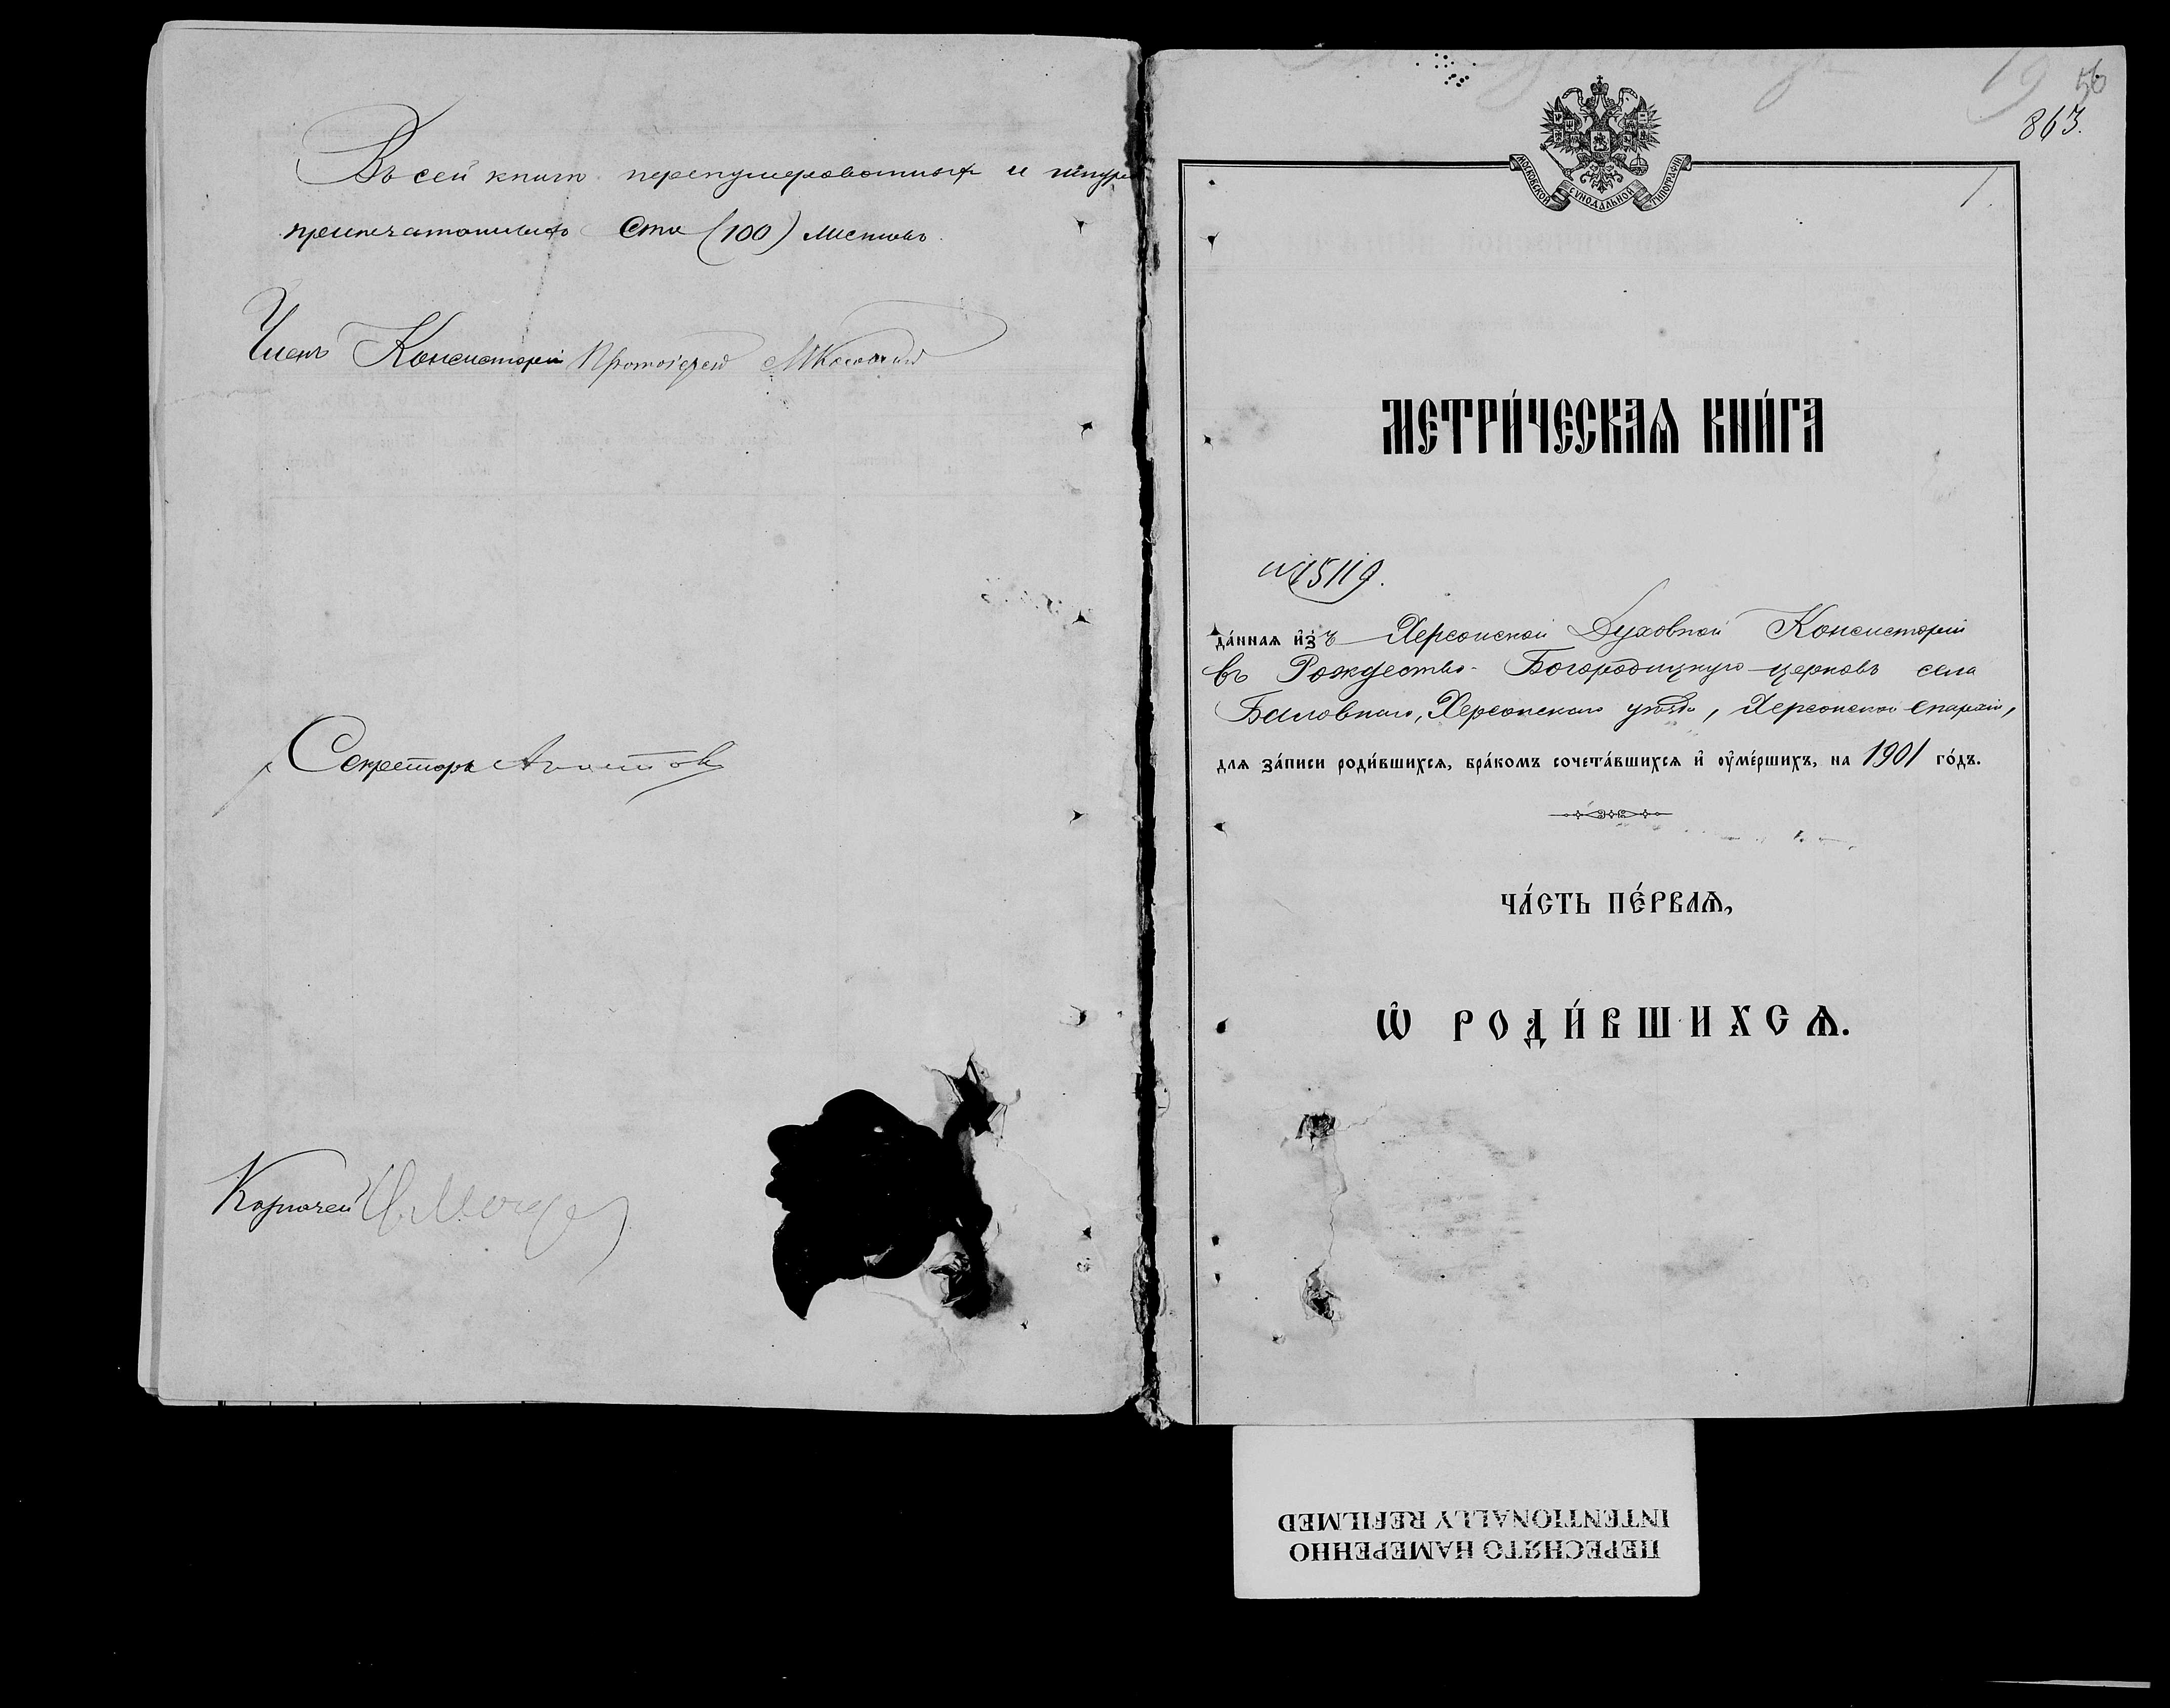 Въ сей книгѣ перенумерованныхъ и шнур
припечатанныхъ Сто (100) листовъ.
Членъ Консисторіи Протоіерей
Секретарь
Казначей
56
863.
1
МОСКОВСКОЙ СѴНОДАЛЬНОЙ ТИПОГРАФІИ
МЕТРИ́ЧЕСКАѦ КНИ́ГА
№ 15119.
да́ннаѧ и҆зъ Херсонской Духовной Консисторіи
въ Рождество-Богородицкую церковь села
Баловнаго, Херсонскаго уѣзда, Херсонской епархіи,
длѧ за́писи роди́вшихсѧ, бра́комъ сочета́вшихсѧ и҆ ᲂу҆ме́ршихъ, на 1901 го́дъ.
ЧА́СТЬ ПЕ́РВАѦ,
Ѽ РОДИ́ВШИХСѦ.
ПЕРЕСНЯТО НАМЕРЕННО
INTENTIONALLY REFILMED